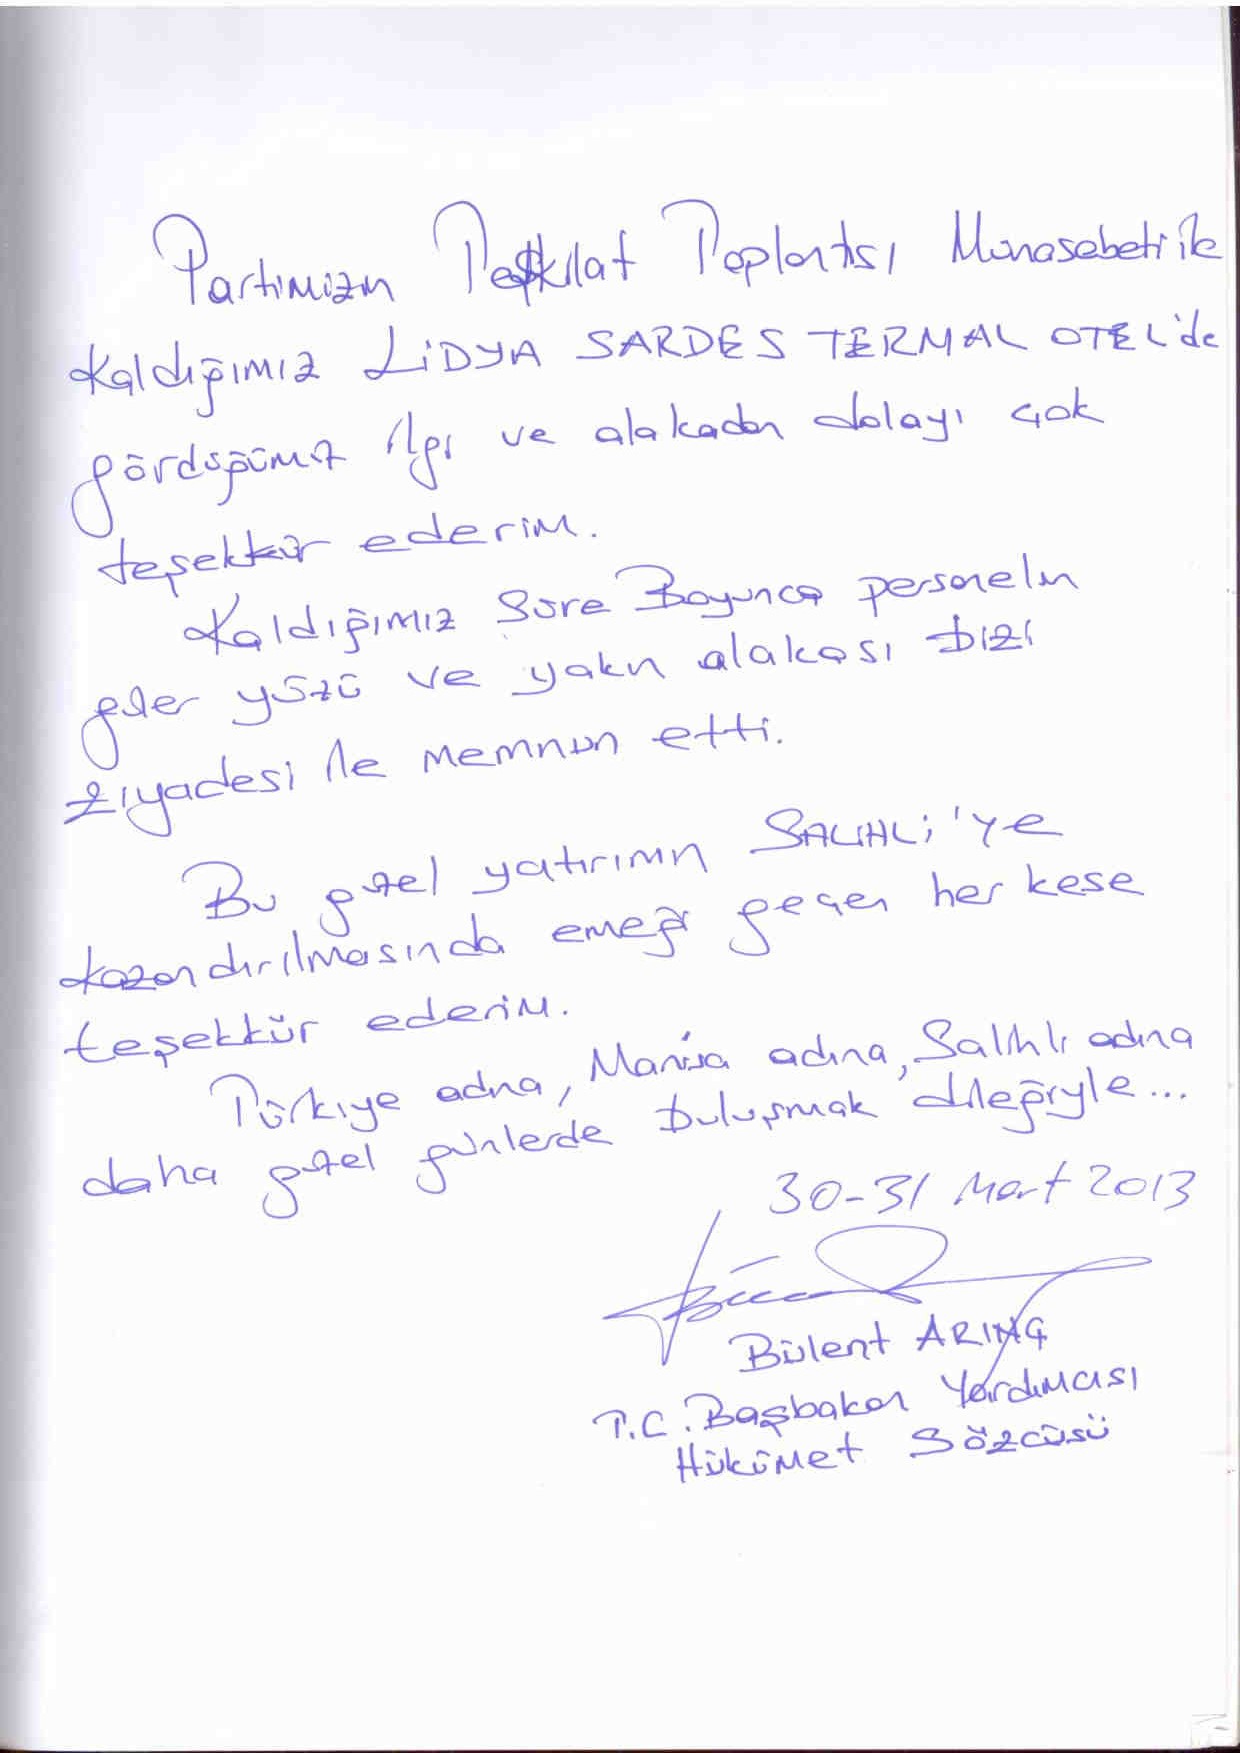 Partimizin Teşkilat Toplantısı Münasebeti ile
Kaldığımız LİDYA SARDES TERMAL OTEL'de
gördüğümüz ilgi ve alakadan dolayı çok
teşekkür ederim.
Kaldığımız Süre Boyunca personelin
güler yüzü ve yakın alakası bizi
ziyadesi ile memnun etti.
Bu güzel yatırımın SALİHLİ'ye
kazandırılmasında emeği geçen her kese
teşekkür ederim.
Türkiye adına, Manisa adına, Salihli adına
daha güzel günlerde buluşmak dileğiyle...
30-31 Mart 2013
Bülent ARINÇ
T.C. Başbakan Yardımcısı
Hükümet Sözcüsü